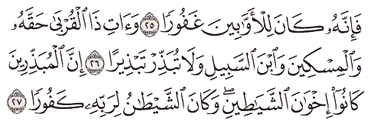 فَإِنَّهُۥ كَانَ لِلْأَوَّٰبِينَ غَفُورًا ۝٢٥ وَءَاتِ ذَا ٱلْقُرْبَىٰ حَقَّهُۥ
وَٱلْمِسْكِينَ وَٱبْنَ ٱلسَّبِيلِ وَلَا تُبَذِّرْ تَبْذِيرًا ۝٢٦ إِنَّ ٱلْمُبَذِّرِينَ
كَانُوٓا۟ إِخْوَٰنَ ٱلشَّيَٰطِينِ ۖ وَكَانَ ٱلشَّيْطَٰنُ لِرَبِّهِۦ كَفُورًا ۝٢٧